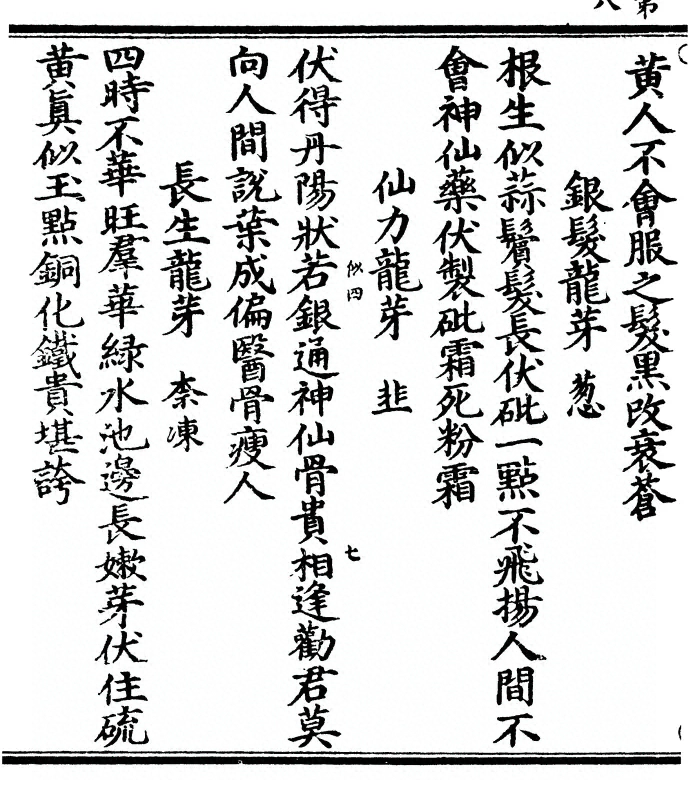 第
八
黃人不會服之髮黑改衰蒼
銀髮龍芽　葱
根生似蒜鬚髮長伏砒一點不飛揚人間不
會神仙藥伏製砒霜死粉霜
仙力龍芽　韭
似四
七
伏得丹陽狀若銀通神仙骨貴相逢勸君莫
向人間說葉成偏醫骨瘦人
長生龍芽　柰凍
四時不華旺羣華綠水池邊長嫩芽伏住硫
黃真似玉點銅化鐵貴堪誇